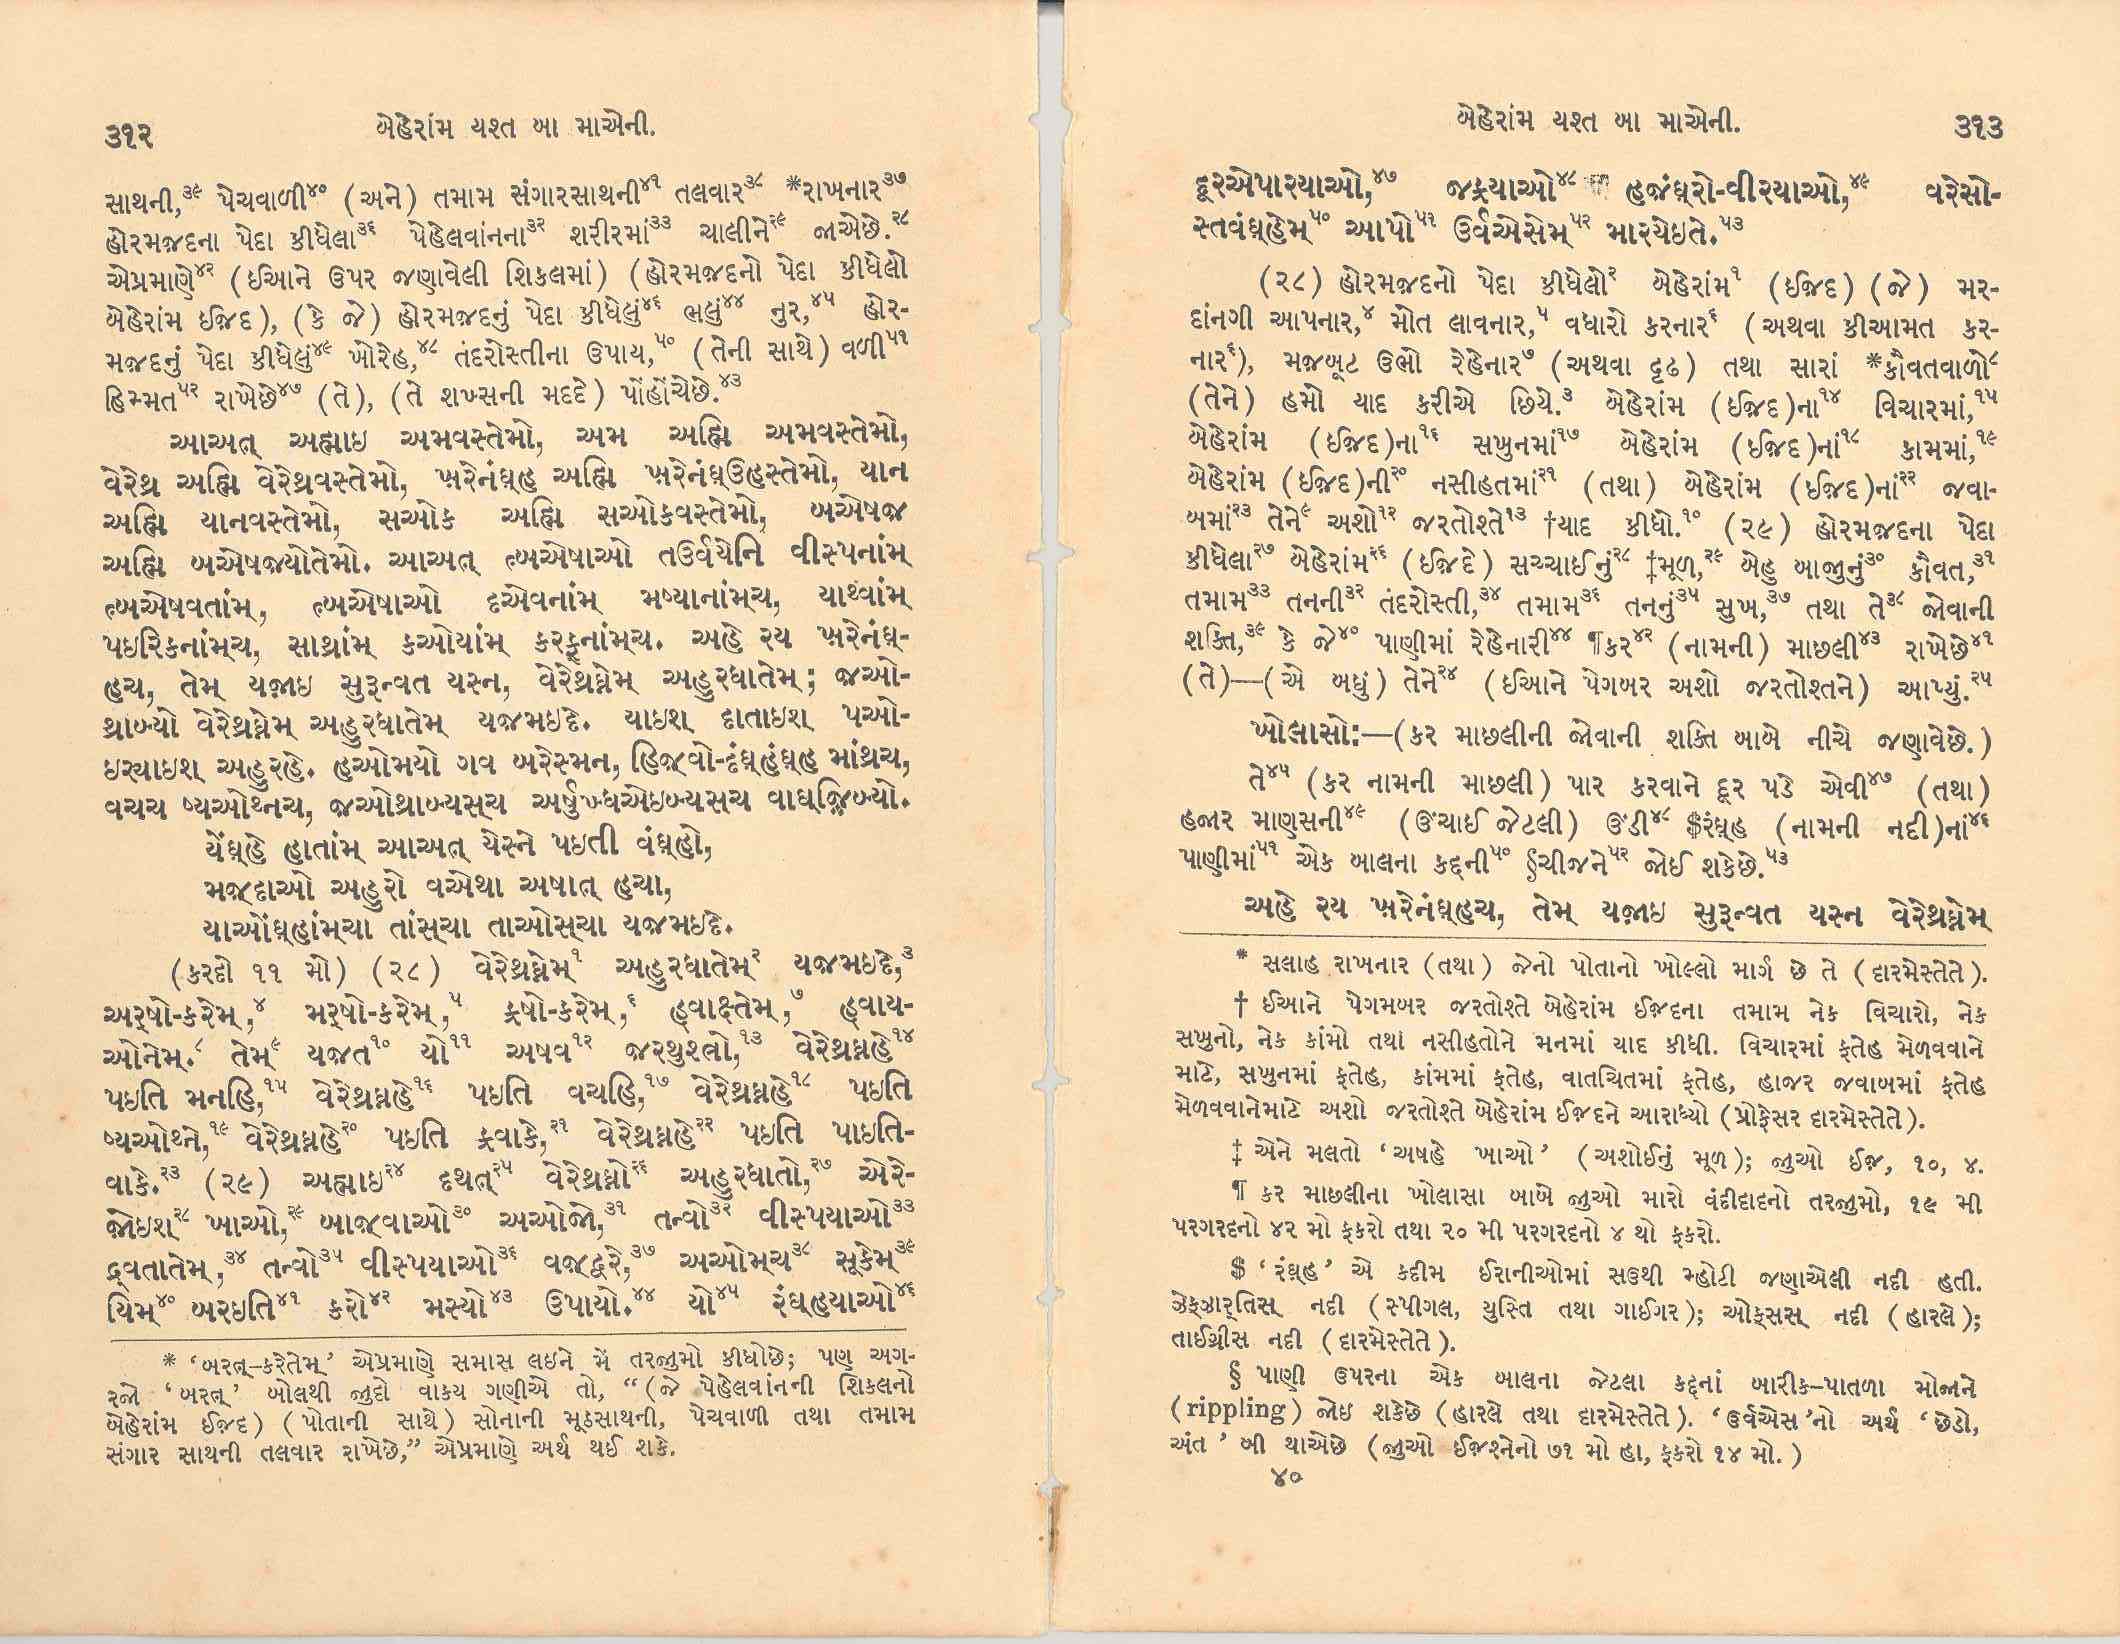 ૩૧૨
બેહેરાંમ યશ્ત બા માએની.
સાથની,૩૯ પેચવાળી૪૦ (અને) તમામ સંગારસાથની૪૧ તલવાર૩૮ *રાખનાર૩૭
હોરમજ઼દના પેદા કીધેલા૩૬ પેહેલવાંનના૩૨ શરીરમાં૩૩ ચાલીને૨૯ જાએછે.૨૮
એપ્રમાણે૪૨ (ઈઆને ઉપર જણાવેલી શિકલમાં) (હોરમજ઼દનો પેદા કીધેલો
બેહેરાંમ ઈજ઼દ), (કે જે) હોરમજ઼દનું પેદા કીધેલું૪૬ ભલું૪૪ નુર,૪૫ હોર-
મજ઼દનું પેદા કીધેલું૪૯ ખોરેહ,૪૮ તંદરોસ્તીના ઉપાય,૫૦ (તેની સાથે) વળી૫૧
હિમ્મત૫૨ રાખેછે૪૭ (તે), (તે શખ્સની મદદે) પોંહોંચેછે.૪૩
આઅત્ અહ્માઇ અમવસ્તેમો, અમ અહ્મિ અમવસ્તેમો,
વેરેથ્ર અહ્મિ વેરેથ્રવસ્તેમો, ખ઼રેનંઘ્હ અહ્મિ ખ઼રેનંઘ્ઉહસ્તેમો, યાન
અહ્મિ યાનવસ્તેમો, સઓક અહ્મિ સઓકવસ્તેમો, બએષજ
અહ્મિ બએષજ઼્યોતેમો. આઅત્ ત્બએષાઓ તઉર્વયેનિ વીસ્પનાંમ્
ત્બએષવતાંમ્, ત્બએષાઓ દએવનાંમ્ મષ્યાનાંમ્ચ, યાથ્વાંમ્
પઇરિકનાંમ્ચ, સાથ્રાંમ્ કઓયાંમ્ કરફ્નાંમ્ચ. અહે રય ખ઼રેનંઘ્-
હચ, તેમ્ યજ઼ાઇ સુરૂન્વત યસ્ન, વેરેથ્રઘ્નેમ્ અહુરધાતેમ્; જ઼ઓ-
થ્રાબ્યો વેરેથ્રઘ્નેમ્ અહુરધાતેમ્ યજ઼મઇદે. યાઇશ્ દાતાઇશ્ પઓ-
ઇર્યાઇશ્ અહુરહે. હઓમયો ગવ બરેસ્મન, હિજ઼્વો-દંઘ્હંઘ્હ માંથ્રચ,
વચચ ષ્યઓથ્નચ, જ઼ઓથ્રાબ્યસ્ચ અર્ષુખ્ધએઇબ્યસચ વાઘ્જ઼િબ્યો.
યેંઘ્હે હાતાંમ્ આઅત્ યેસ્ને પઇતી વંઘ્હો,
મજ઼્દાઓ અહુરો વએથા અષાત્ હચા,
યાઓંઘ્હાંમ્ચા તાંસ્ચા તાઓસ્ચા યજ઼મઇદે.
(કરદો ૧૧ મો) (૨૮) વેરેથ્રઘ્નેમ્૧ અહુરધાતેમ્૨ યજ઼મઇદે,૩
અર્ષો-કરેમ્,૪ મર્ષો-કરેમ્,૫ ફ્રષો-કરેમ્,૬ હ્વાક્ષ્તેમ્,૭ હ્વાય-
ઓનેમ્.૮ તેમ્૯ યજ઼ત૧૦ યો૧૧ અષવ૧૨ જ઼રથુશ્ત્રો,૧૩ વેરેથ્રઘ્નહે૧૪
પઇતિ મનહિ,૧૫ વેરેથ્રઘ્નહે૧૬ પઇતિ વચહિ,૧૭ વેરેથ્રઘ્નહે૧૮ પઇતિ
ષ્યઓથ્ને,૧૯ વેરેથ્રઘ્નહે૨૦ પઇતિ ફ્રવાકે,૨૧ વેરેથ્રઘ્નહે૨૨ પઇતિ પાઇતિ-
વાકે.૨૩ (૨૯) અહ્માઇ૨૪ દથત્૨૫ વેરેથ્રઘ્નો૨૬ અહુરધાતો,૨૭ એરે-
જ઼ોઇશ્૨૮ ખાઓ,૨૯ બાજ઼્વાઓ૩૦ અઓજો,૩૧ તન્વો૩૨ વીસ્પયાઓ૩૩
દ્ર્વતાતેમ્,૩૪ તન્વો૩૫ વીસ્પયાઓ૩૬ વજ઼્દ્વરે,૩૭ અઓમ્ચ૩૮ સૂકેમ્૩૯
યિમ્૪૦ બરઇતિ૪૧ કરો૪૨ મસ્યો૪૩ ઉપાયો.૪૪ યો૪૫ રંઘ્હયાઓ૪૬
* ‘બરત્-કરેતેમ્’ એપ્રમાણે સમાસ લઇને મેં તરજુમો કીધોછે; પણ અગ-
રજો ‘બરત્’ બોલથી જુદો વાકય ગણીએ તો, “(જે પેહેલવાંનની શિકલનો
બેહેરાંમ ઈજ઼દ) (પોતાની સાથે) સોનાની મૂઠસાથની, પેચવાળી તથા તમામ
સંગાર સાથની તલવાર રાખેછે,” એપ્રમાણે અર્થ થઈ શકે.
બેહેરાંમ યશ્ત બા માએની.
૩૧૩
દૂરએપારયાઓ,૪૭ જફ્રયાઓ૪૮ હજ઼ંઘ્રો-વીરયાઓ,૪૯ વરેસો-
સ્તવંઘ્હેમ્૫૦ આપો૫૧ ઉર્વએસેમ્૫૨ મારયેઇતે.૫૩
(૨૮) હોરમજ઼દનો પેદા કીધેલો૨ બેહેરાંમ૧ (ઈજ઼દ) (જે) મર-
દાંનગી આપનાર,૪ મોત લાવનાર,૫ વધારો કરનાર૬ (અથવા કીઆમત કર-
નાર૬), મજબૂટ ઉભો રેહેનાર૭ (અથવા દૃઢ) તથા સારાં *કૌવતવાળો૮
(તેને) હમો યાદ કરીએ છિયે.૩ બેહેરાંમ (ઈજ઼દ)ના૧૪ વિચારમાં,૧૫
બેહેરાંમ (ઈજ઼દ)ના૧૬ સખુનમાં૧૭ બેહેરાંમ (ઈજ઼દ)નાં૧૮ કામમાં,૧૯
બેહેરાંમ (ઈજ઼દ)ની૨૦ નસીહતમાં૨૧ (તથા) બેહેરાંમ (ઈજ઼દ)નાં૨૨ જવા-
બમાં૨૩ તેને૯ અશો૧૨ જરતોશ્તે૧૩ †યાદ કીધો.૧૦ (૨૯) હોરમજ઼દના પેદા
કીધેલા૨૭ બેહેરાંમ૨૬ (ઈજ઼દે) સચ્ચાઈનું૨૮ ‡મૂળ,૨૯ બેહુ બાજુનું૩૦ કૌવત,૩૧
તમામ૩૩ તનની૩૨ તંદરોસ્તી,૩૪ તમામ૩૬ તનનું૩૫ સુખ,૩૭ તથા તે૩૮ જોવાની
શક્તિ,૩૯ કે જે૪૦ પાણીમાં રેહેનારી૪૪ ¶કર૪૨ (નામની) માછલી૪૩ રાખેછે૪૧
(તે)—(એ બધું) તેને૨૪ (ઈઆને પેગબર અશો જરતોશ્તને) આપ્યું.૨૫
ખોલાસો:—(કર માછલીની જોવાની શક્તિ બાબે નીચે જણાવેછે.)
તે૪૫ (કર નામની માછલી) પાર કરવાને દૂર પડે એવી૪૭ (તથા)
હજાર માણસની૪૯ (ઊંચાઈ જેટલી) ઊંડી૪૮ $રંઘ્હ (નામની નદી)નાં૪૬
પાણીમાં૫૧ એક બાલના કદ્દની૫૦ §ચીજને૫૨ જોઈ શકેછે.૫૩
અહે રય ખ઼રેનંઘ્હચ, તેમ્ યજ઼ાઇ સુરૂન્વત યસ્ન વેરેથ્રઘ્નેમ્
* સલાહ રાખનાર (તથા) જેનો પોતાનો ખોલ્લો માર્ગ છે તે (દારમેસ્તેતે).
† ઈઆને પેગમબર જરતોશ્તે બેહેરાંમ ઈજ઼દના તમામ નેક વિચારો, નેક
સખુનો, નેક કાંમો તથા નસીહતોને મનમાં યાદ કીધી. વિચારમાં ફતેહ મેળવવાને
માટે, સખુનમાં ફતેહ, કાંમમાં ફતેહ, વાતચિતમાં ફતેહ, હાજર જવાબમાં ફતેહ
મેળવવાનેમાટે અશો જરતોશ્તે બેહેરાંમ ઈજ઼દને આરાધ્યો (પ્રોફેસર દારમેસ્તેતે).
‡ એને મલતો ‘અષહે ખાઓ’ (અશોઈનું મૂળ); જુઓ ઈજ઼, ૧૦, ૪.
¶ કર માછલીના ખોલાસા બાબે જુઓ મારો વંદીદાદનો તરજુમો, ૧૯ મી
પરગરદનો ૪૨ મો ફકરો તથા ૨૦ મી પરગરદનો ૪ થો ફકરો.
$ ‘રંઘ્હ’ એ કદીમ ઈરાનીઓમાં સઉથી મ્હોટી જણાએલી નદી હતી.
ઝેક્ઝાર્તિસ્ નદી (સ્પીગલ, યુસ્તિ તથા ગાઈગર); ઓક્સસ્ નદી (હારલે);
તાઈગ્રીસ નદી (દારમેસ્તેતે).
§ પાણી ઉપરના એક બાલના જેટલા કદ્દનાં બારીક-પાતળા મોજાને
(rippling) જોઇ શકેછે (હારલે તથા દારમેસ્તેતે). ‘ઉર્વએસ’નો અર્થ ‘છેડો,
અંત’ બી થાએછે (જુઓ ઈજ઼શ્નેનો ૭૧ મો હા, ફકરો ૧૪ મો.)
૪૦